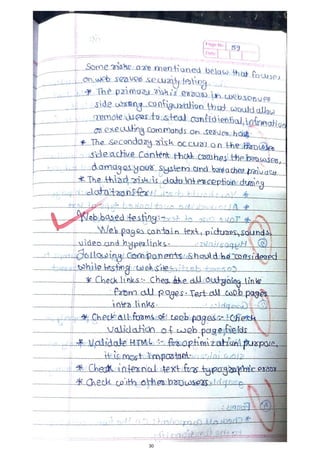 Page No. 59
Date
Some risks are mentioned below that focuses
on web server security testing.
* The primary risk is errors in webserver
side wrong configuration that would allow
remote users to steal confidential information
or executing commands on server host
* The secondary risk occurs on the browser
side active content that crashes the browser,
damages your system and breaches privacy
* The third risk is data interception during
data transfer
Web based testing :-
Web pages contain text, pictures, sounds,
video and hyperlinks.
Following components should be considered
while testing website
* Check links :- Ches the all outgoing links
from all pages. Test all web pages
inter links.
* Check all forms of web pages :- Check
validation of web page fields
* Validate HTML :- for optimization purpose,
it is most important.
* Check internal text for typographic error
* Check with other browsers
30